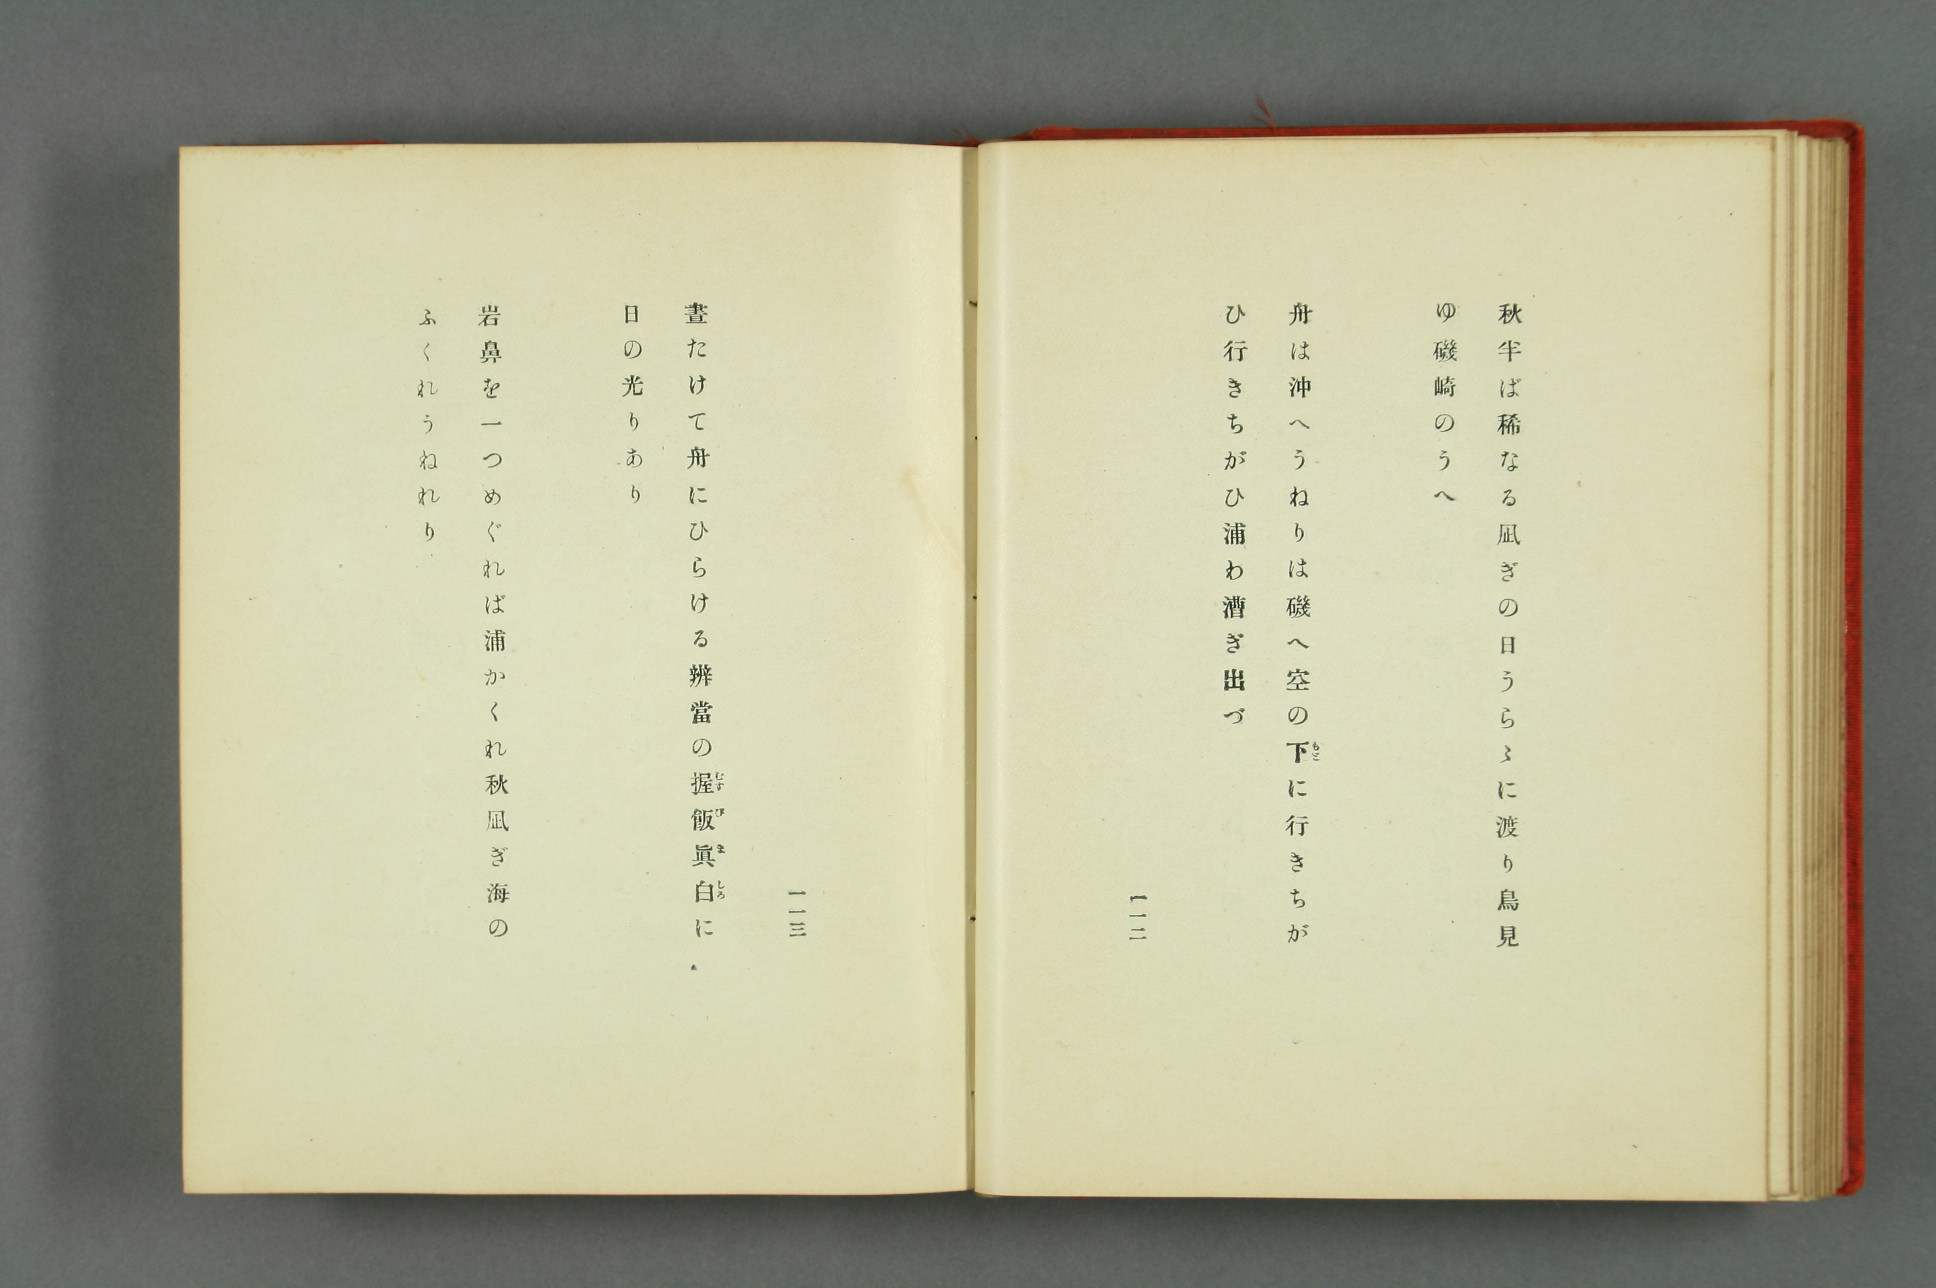 秋半ば稀なる凪ぎの日うらゝに渡り鳥見
ゆ磯崎のうへ
舟は沖へうねりは磯へ空の下に行きちが
ひ行きちがひ浦わ漕ぎ出づ
一一二
一一三
晝たけて舟にひらける辨當の握飯眞白に
日の光りあり
岩鼻を一つめぐれば浦かくれ秋凪ぎ海の
ふくれうねれり